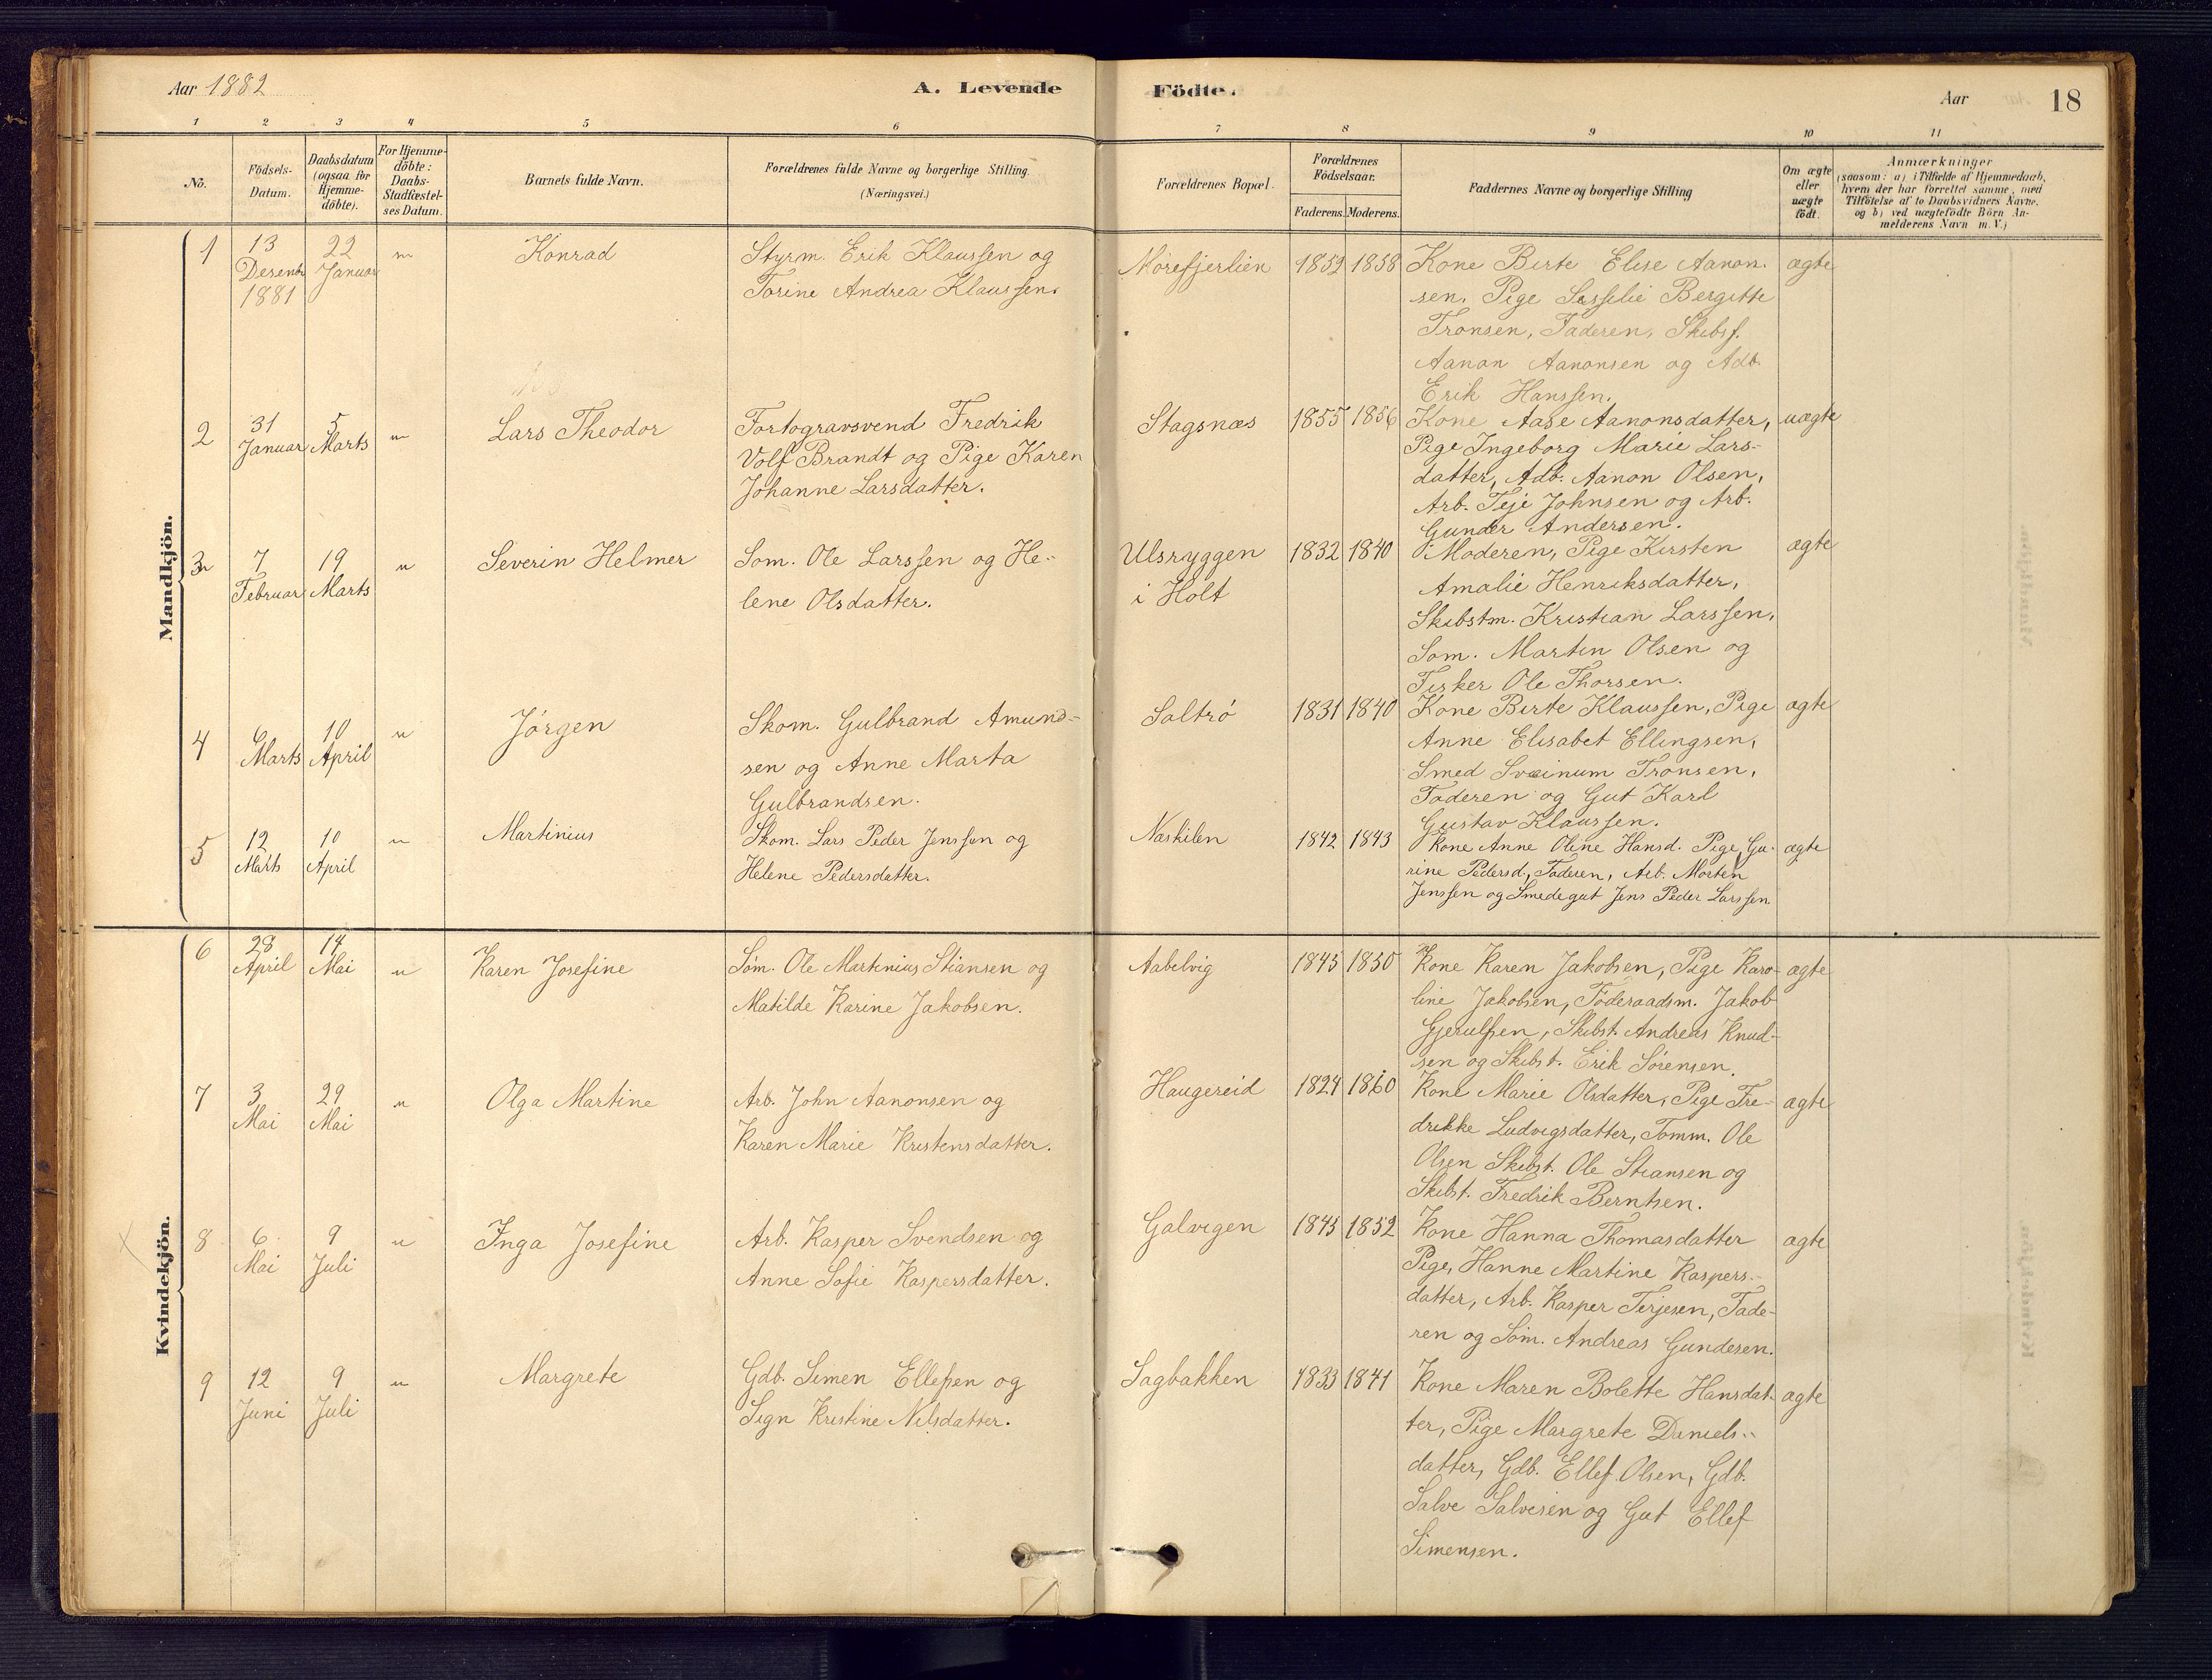 Aar 1882
A. Levende Födte.
Aar
18
1 2 3 4 5 6 7 8 9 10 11
No.
Födsels-
Datum.
Daabsdatum
(ogsaa for
Hjemme-
döbte).
For Hjemme-
döbte:
Daabs-
Stadfæstel-
ses Datum.
Barnets fulde Navn.
Forældrenes fulde Navne og borgerlige Stilling.
(Næringsvei.)
Forældrenes Bopæl.
Forældrenes
Födselsaar.
Faderens. Moderens.
Faddernes Navne og borgerlige Stilling
Om ægte
eller
uægte
födt.
Anmærkninger
(saasom: a) i Tilfælde af Hjemmedaab,
hvem der har forrettet samme, med
Tilföielse af to Daabsvidners Navne.
og b) ved uægtefödte Börn An-
melderens Navn m. V.)
Mandkjön.
1
13
Desembr
1881
22
Januar
"
Konrad
Styrm. Erik Klaussen og
Torine Andrea Klaussen.
Morefjerlien
1852 1858
Kone Birte Elise Aanon-
sen. Pige Sissilie Bergitte
Tronsen, Faderen, Skibsf.
Aanon Aanonsen og Adb.
Erik Hanssen.
ægte
2
31
Januar
5
Marts
"
Lars Theodor
Fortogravsvend Fredrik
Volf Brandt og Pige Karen
Johanne Larsdatter.
Stagsnæs
1855 1856
Kone Aase Aanonsdatter,
Pige Ingeborg Marie Lars-
datter, Adb. Aanon Olsen,
Arb. Teje Johnsen og Arb.
Gunder Andersen.
uægte
3
7
Februar
19
Marts
"
Severin Helmer
Som. Ole Larssen og He-
lene Olsdatter.
Ulsryggen
i Holt
1832 1840
Moderen, Pige Kirsten
Amalie Henriksdatter,
Skibstm. Kristian Larssen,
Som. Martin Olsen og
Fisker Ole Thorsen.
ægte
4
6
Marts
10
April
"
Jørgen
Skom. Gulbrand Amund-
sen og Anne Marta
Gulbrandsen.
Saltrø
1831 1840
Kone Birte Klaussen, Pige
Anne Elisabet Ellingsen,
Smed Sveinum Tronsen,
Faderen og Gut Karl
Gustav Klaussen.
ægte
5
12
Marts
10
April
"
Martinius
Skom. Lars Peder Jenssen og
Helene Pedersdatter.
Naskilen
1842 1843
Kone Anne Oline Hansd. Pige Gu-
rine Pedersd., Faderen, Arb. Morten
Jenssen og Smedegut Jens Peder Larssen
ægte
Kvindekjön.
6
28
April
14
Mai
"
Karen Josefine
Søm. Ole Martinius Stiansen og
Matilde Karine Jakobsen.
Aabelvig
1845 1850
Kone Karen Jakobsen, Pige Karo-
line Jakobsen, Føderaadsm. Jakob
Gjerulfsen, Skibst. Andreas Knud-
sen og Skibst. Erik Sørensen.
ægte
7
3
Mai
29
Mai
"
Olga Martine
Arb. John Aanonsen og
Karen Marie Kristensdatter.
Haugereid
1824 1860
Kone Marie Olsdatter, Pige Fre-
drikke Ludvigsdatter, Tomm. Ole
Olsen Skibst. Ole Stiansen og
Skibst. Fredrik Berntsen.
ægte
8
6
Mai
9
Juli
"
Inga Josefine
Arb. Kasper Svendsen og
Anne Sofie Kaspersdatter.
Galvigen
1845 1852
Kone Hanna Thomasdatter
Pige, Hanne Martine Kaspers-
datter, Arb. Kasper Terjesen, Fade-
ren og Søm. Andreas Gundersen.
ægte
9
12
Juni
9
Juli
"
Margrete
Gdb. Simen Ellefsen og
Sign Kristine Nilsdatter.
Sagbakken
1833 1841
Kone Maren Bolette Hansdat-
ter, Pige Margrete Daniels-
datter, Gdb. Ellef Olsen, Gdb.
Salve Salvesen og Gut Ellef
Simensen.
ægte